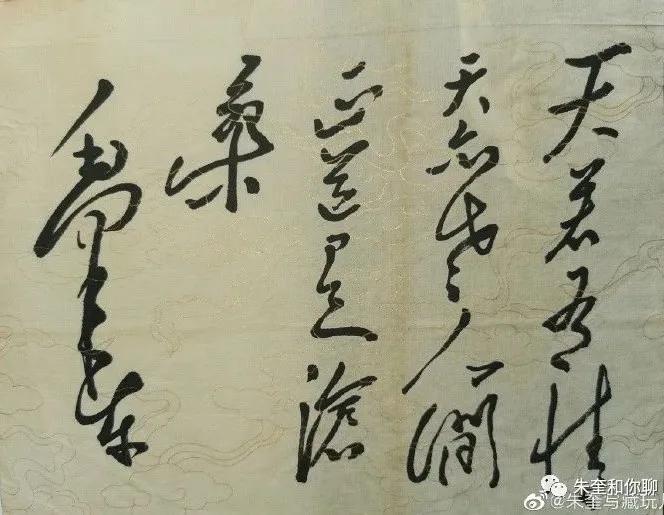 天若有情
天亦老人間
正道是滄
桑
毛澤東
朱奎和你聊
@朱奎与藏玩